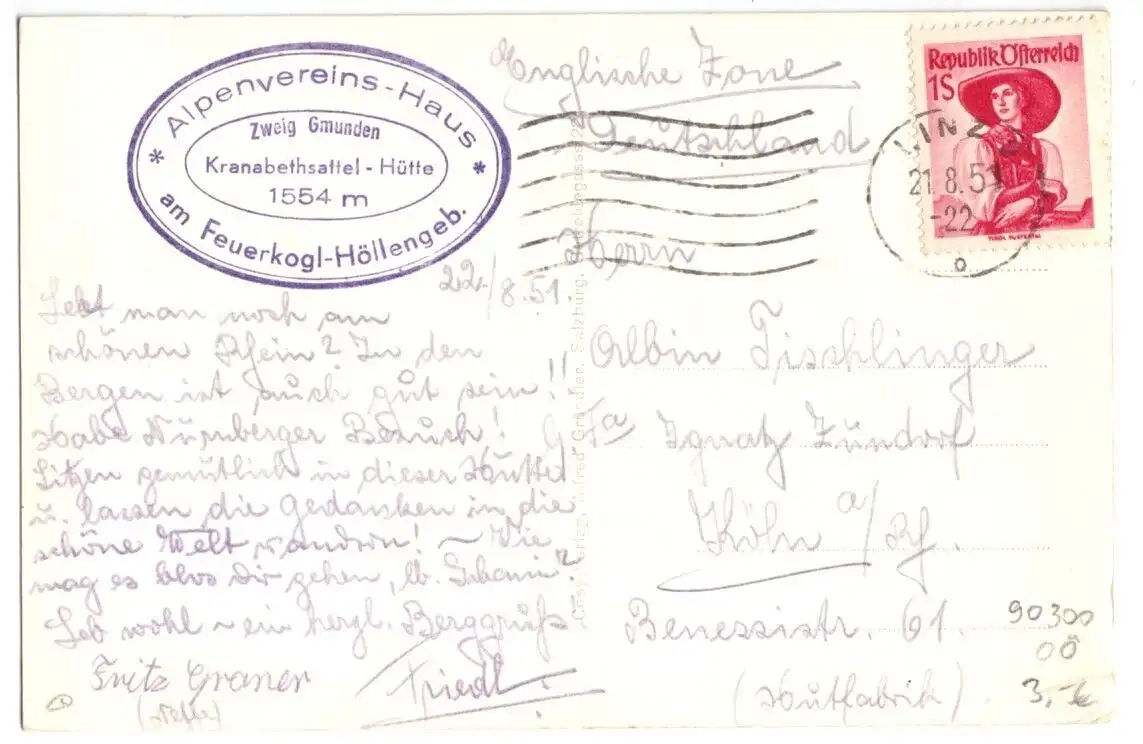 Alpenvereins-Haus
Zweig Gmunden
Kranabethsattel - Hütte
1554 m
am Feuerkogl-Höllengeb.
22./8.51.
Lebt man noch am
schönen Rhein? In den
Bergen ist auch gut sein!!
Habe Nürnberger Besuch!
Sitzen gemütlich in dieser Hütte
u. lassen die Gedanken in die
schöne Welt wandern! – Wie
mag es blos Dir gehen, lb.
Leb wohl – ein herzl. Berggruß!
Friedl.
Fritz Graner
(Neffe)
Englische Zone
Deutschland
Republik Österreich
1S
LINZ
21.8.51
-22
Herrn
Albin Tischlinger
Fa Ignatz Zündorf
Köln a/Rh.
Benesisstr. 61.
(Hutfabrik)
90300
OÖ
3,-€